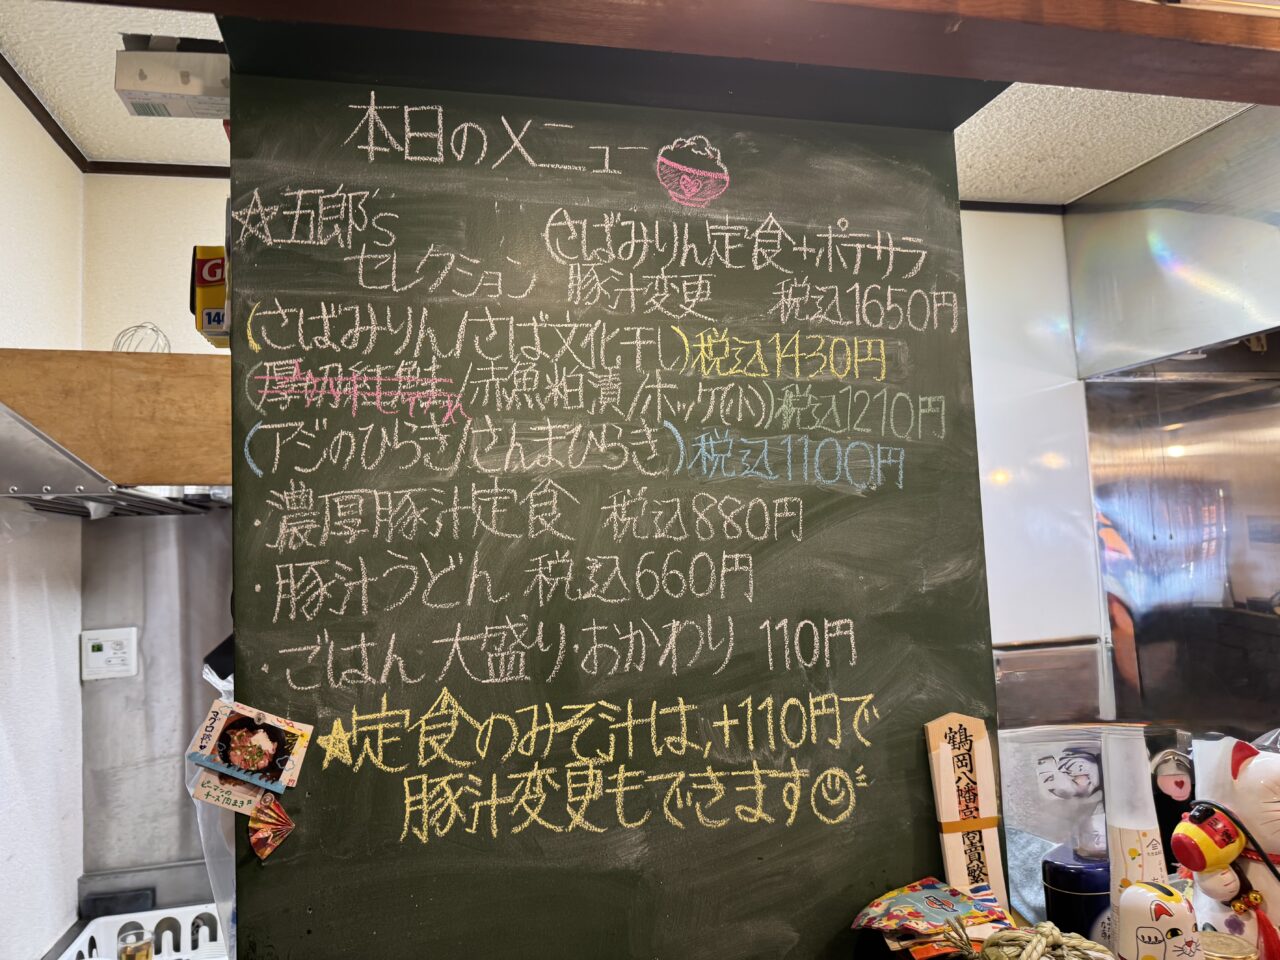 本日のメニュー
☆五郎's
セレクション
(さばみりん定食+ポテサラ
豚汁変更 税込1650円
(さばみりん/さば文化干し)税込1430円
(厚切秋鮭/赤魚粕漬/ホッケ(小))税込1210円
(アジのひらき/さんまひらき)税込1100円
・濃厚豚汁定食 税込880円
・豚汁うどん 税込660円
・ごはん 大盛り・おかわり 110円
★定食のみそ汁は、+110円で
豚汁変更もできます
ピーマンの
チーズ肉まき
鶴岡八幡宮商賣繁
G
140